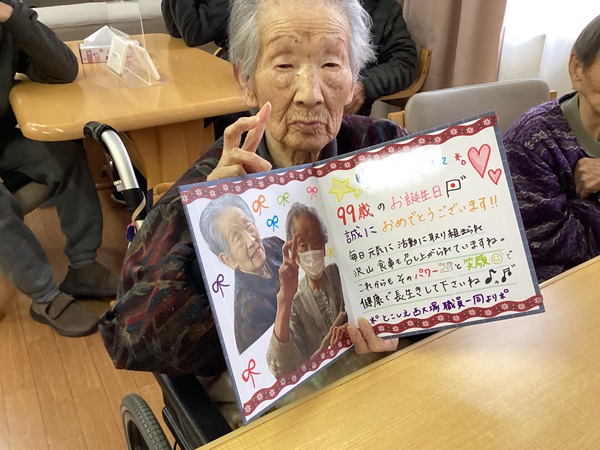 99歳のお誕生日
誠におめでとうございます!!
毎日元気に活動に取り組まれ
沢山食事も召し上がられていますね。
これからもそのパワーと笑顔で
健康で長生きして下さいね
とこしえ古大場職員一同より